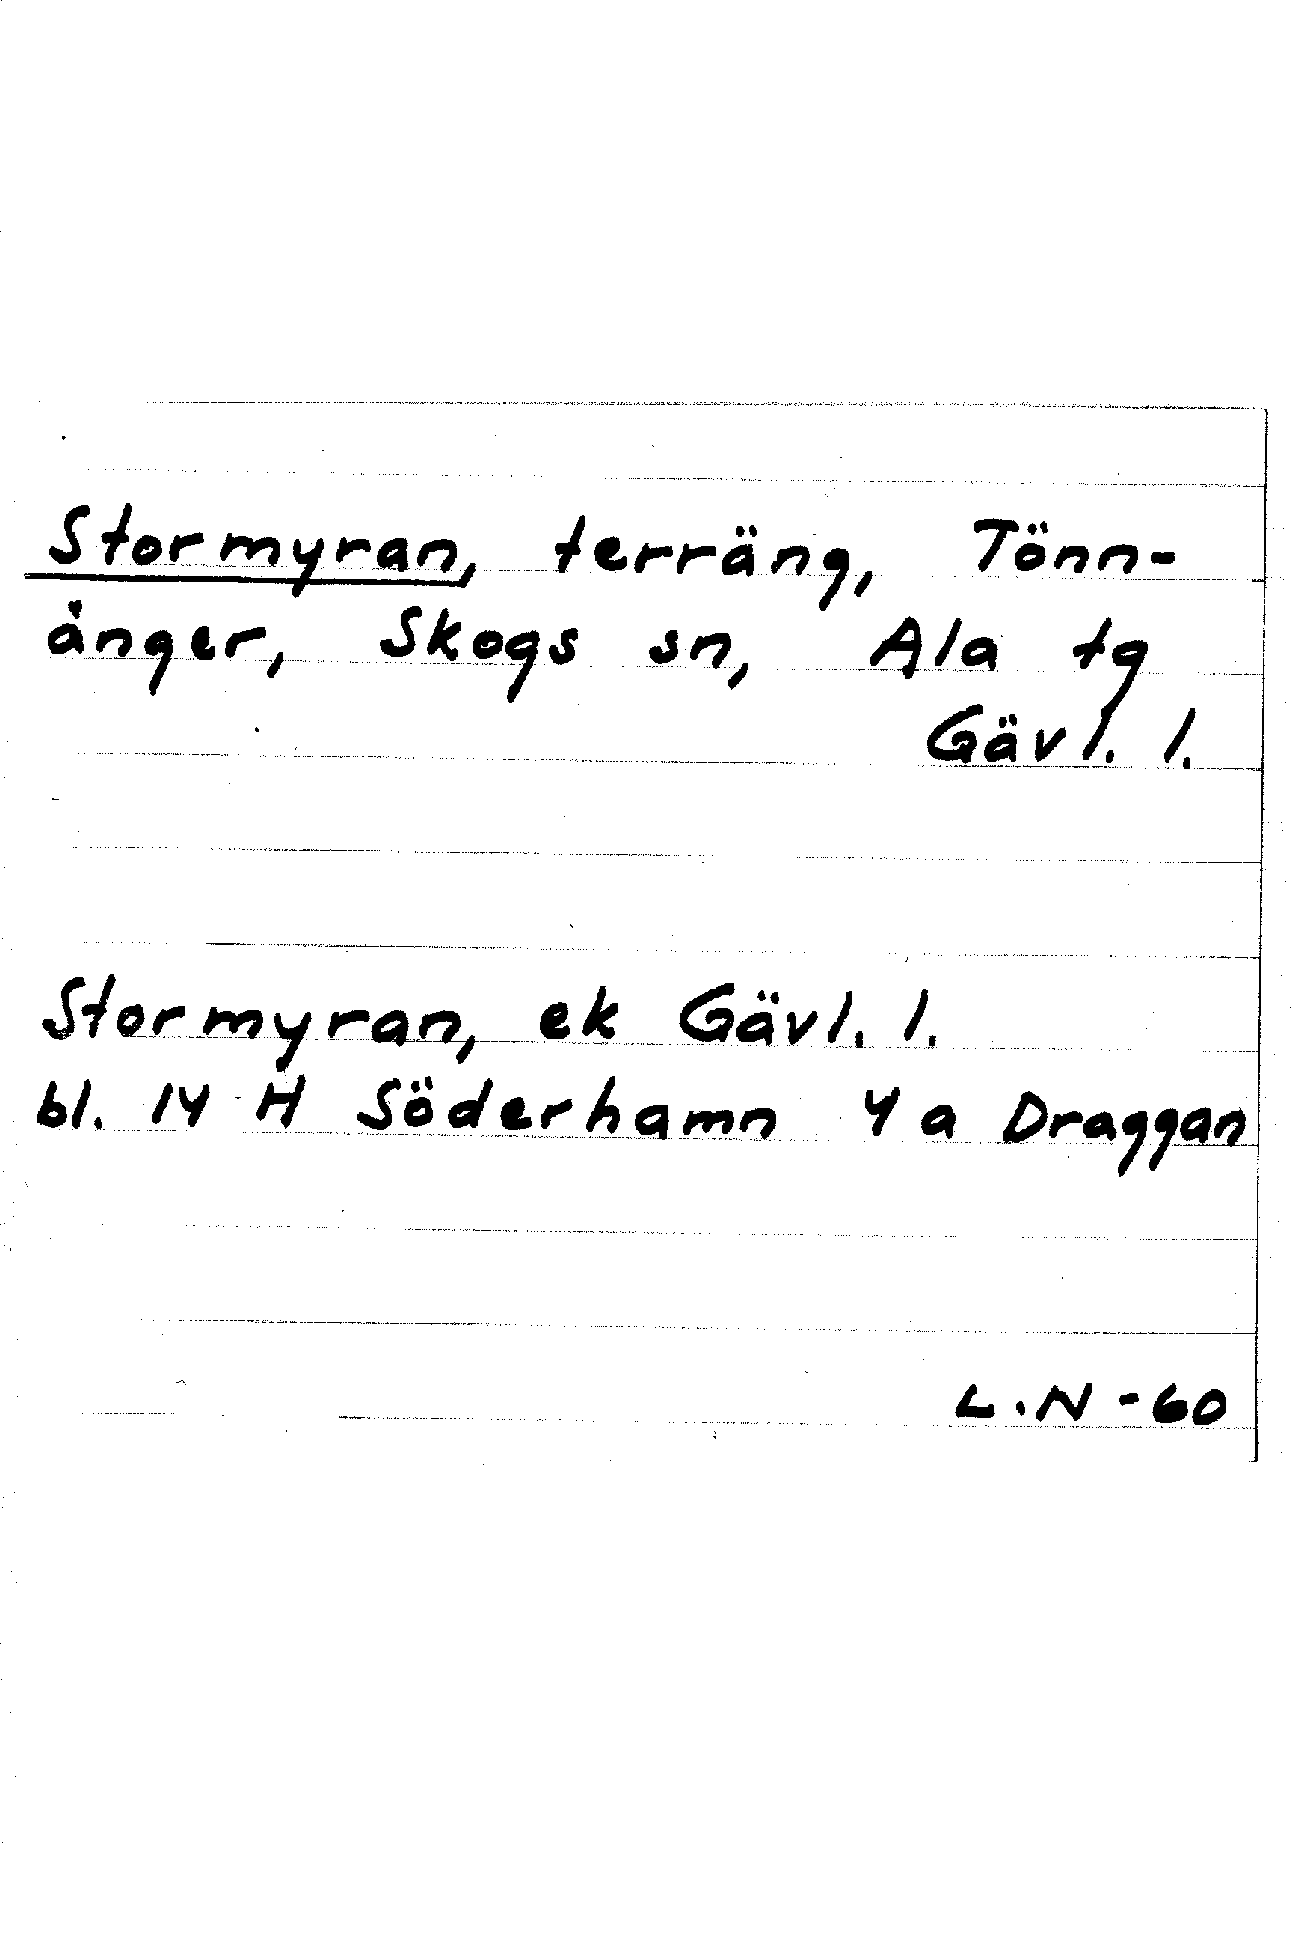 Stormyran, terräng, Tönn-
ånger, Skogs sn, Ala tg
Gävl. l.
Stormyran, ek Gävl. l.
bl. 14 H Söderhamn 4 a Draggan
L.N -60